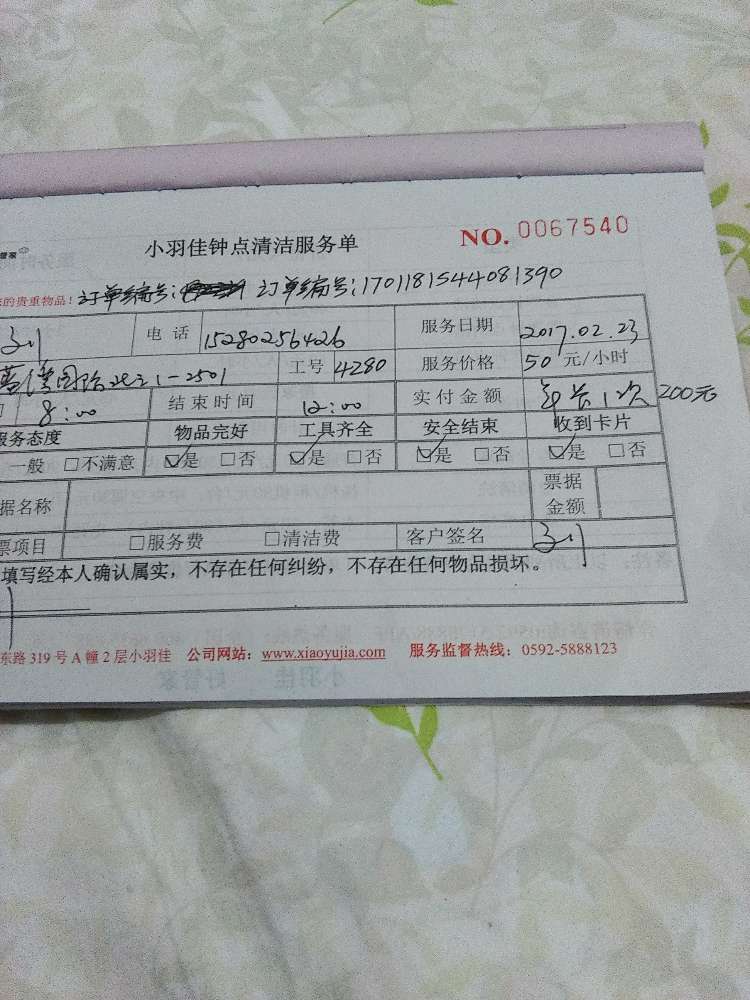 管家
小羽佳钟点清洁服务单 NO. 0067540
的贵重物品！订单编号： 订单编号：1701181544081390
电话 15280256426 服务日期 2017.02.23
1-2501 工号 4280 服务价格 50 元/小时
8:00 结束时间 12:00 实付金额 年卡1次 200元
服务态度 物品完好 工具齐全 安全结束 收到卡片
一般 □不满意 ☑是 □否 ☑是 □否 ☑是 □否 ☑是 □否
据名称 票据金额
票项目 □服务费 □清洁费 客户签名
填写经本人确认属实，不存在任何纠纷，不存在任何物品损坏。
东路 319 号 A 幢 2 层小羽佳 公司网站：www.xiaoyujia.com 服务监督热线：0592-5888123